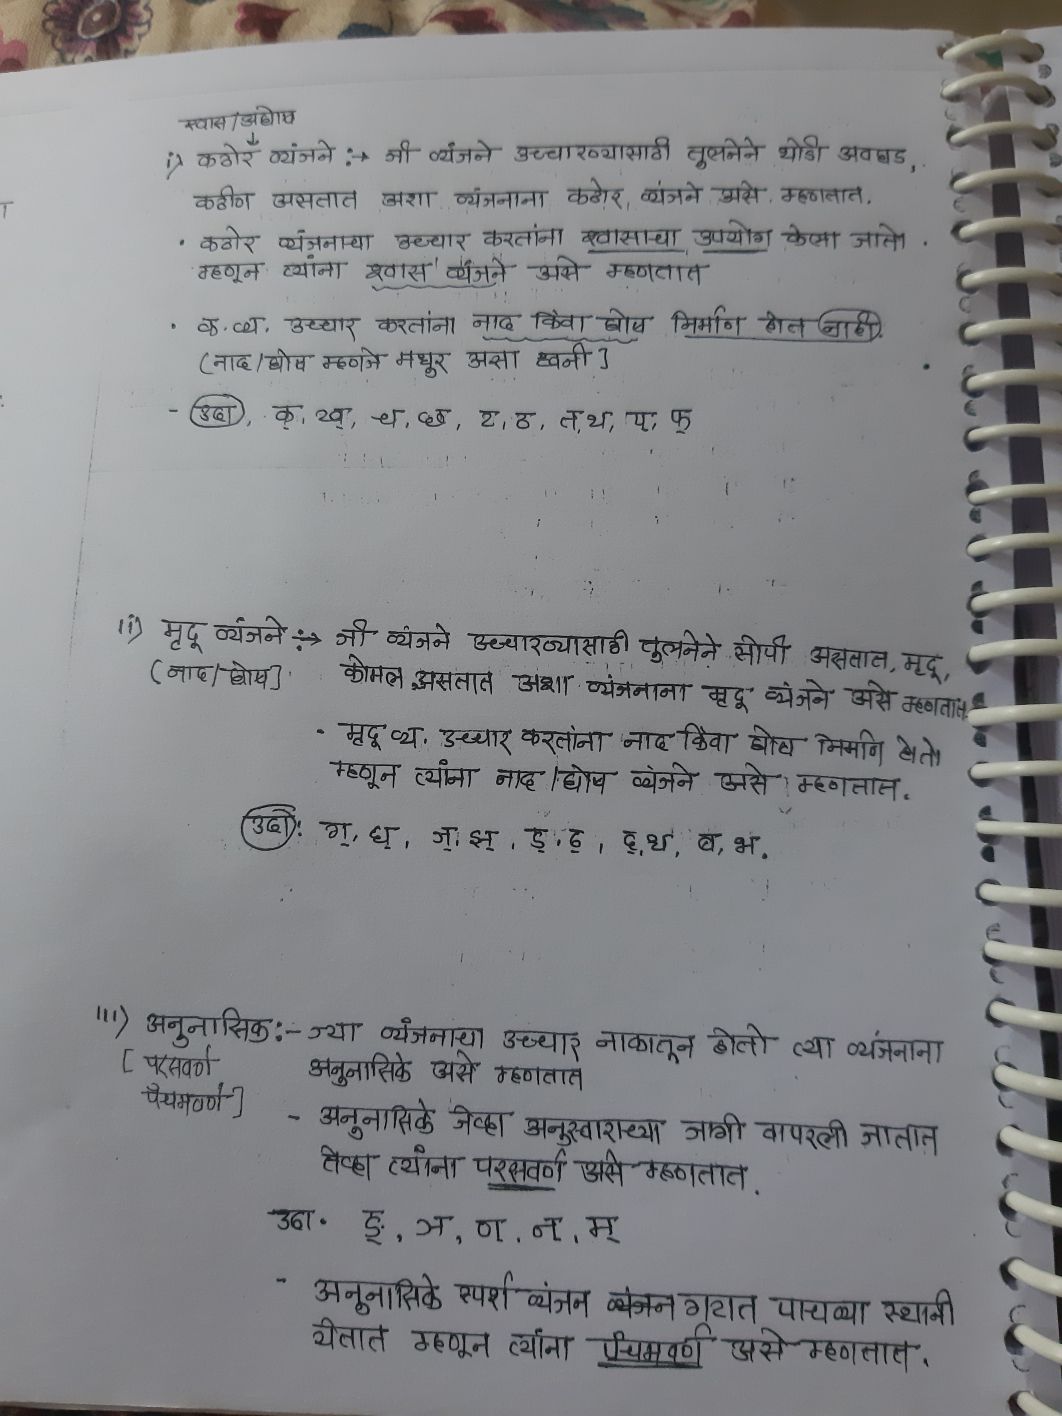 श्वास/अघोष
i) कठोर व्यंजने :→ जी व्यंजने उच्चारण्यासाठी तुलनेने थोडी अवघड,
कठीण असतात अशा व्यंजनाना कठोर, व्यंजने असे. म्हणतात.
• कठोर व्यंजनाचा उच्चार करतांना श्वासाचा उपयोग केला जातो.
म्हणून त्यांना श्वास व्यंजने असे म्हणतात
• क. व्य. उच्चार करतांना नाद किंवा घोष निर्माण होत नाही.
(नाद/घोष म्हणजे मधुर असा ध्वनी]
- उदा, क्, ख्, च, छ, ट, ठ, त, थ, प्, फ्
ii) मृदू व्यंजने :→ जी व्यंजने उच्चारण्यासाठी तुलनेने सोपी असतात, मृदू,
(नाद/घोष] कोमल असतात अशा व्यंजनाना मृदू व्यंजने असे म्हणतात.
• मृदू व्य. उच्चार करतांना नाद किंवा घोष निर्माण होतो
म्हणून त्यांना नाद/घोष व्यंजने असे म्हणतात.
उदा: ग्, घ्, ज्, झ्, ड्, ढ्, द्, ध, ब, भ.
iii) अनुनासिक :- ज्या व्यंजनाचा उच्चार नाकातून होतो त्या व्यंजनाना
[परसवर्ण अनुनासिके असे म्हणतात
पंचमवर्ण]
- अनुनासिके जेव्हा अनुस्वाराच्या जागी वापरली जातात
तेव्हा त्यांना परसवर्ण असे म्हणतात.
उदा. ङ्, ञ, ण, न्, म्
- अनुनासिके स्पर्श व्यंजन व्यंजन गटात पाचव्या स्थानी
येतात म्हणून त्यांना पंचमवर्ण असे म्हणतात.